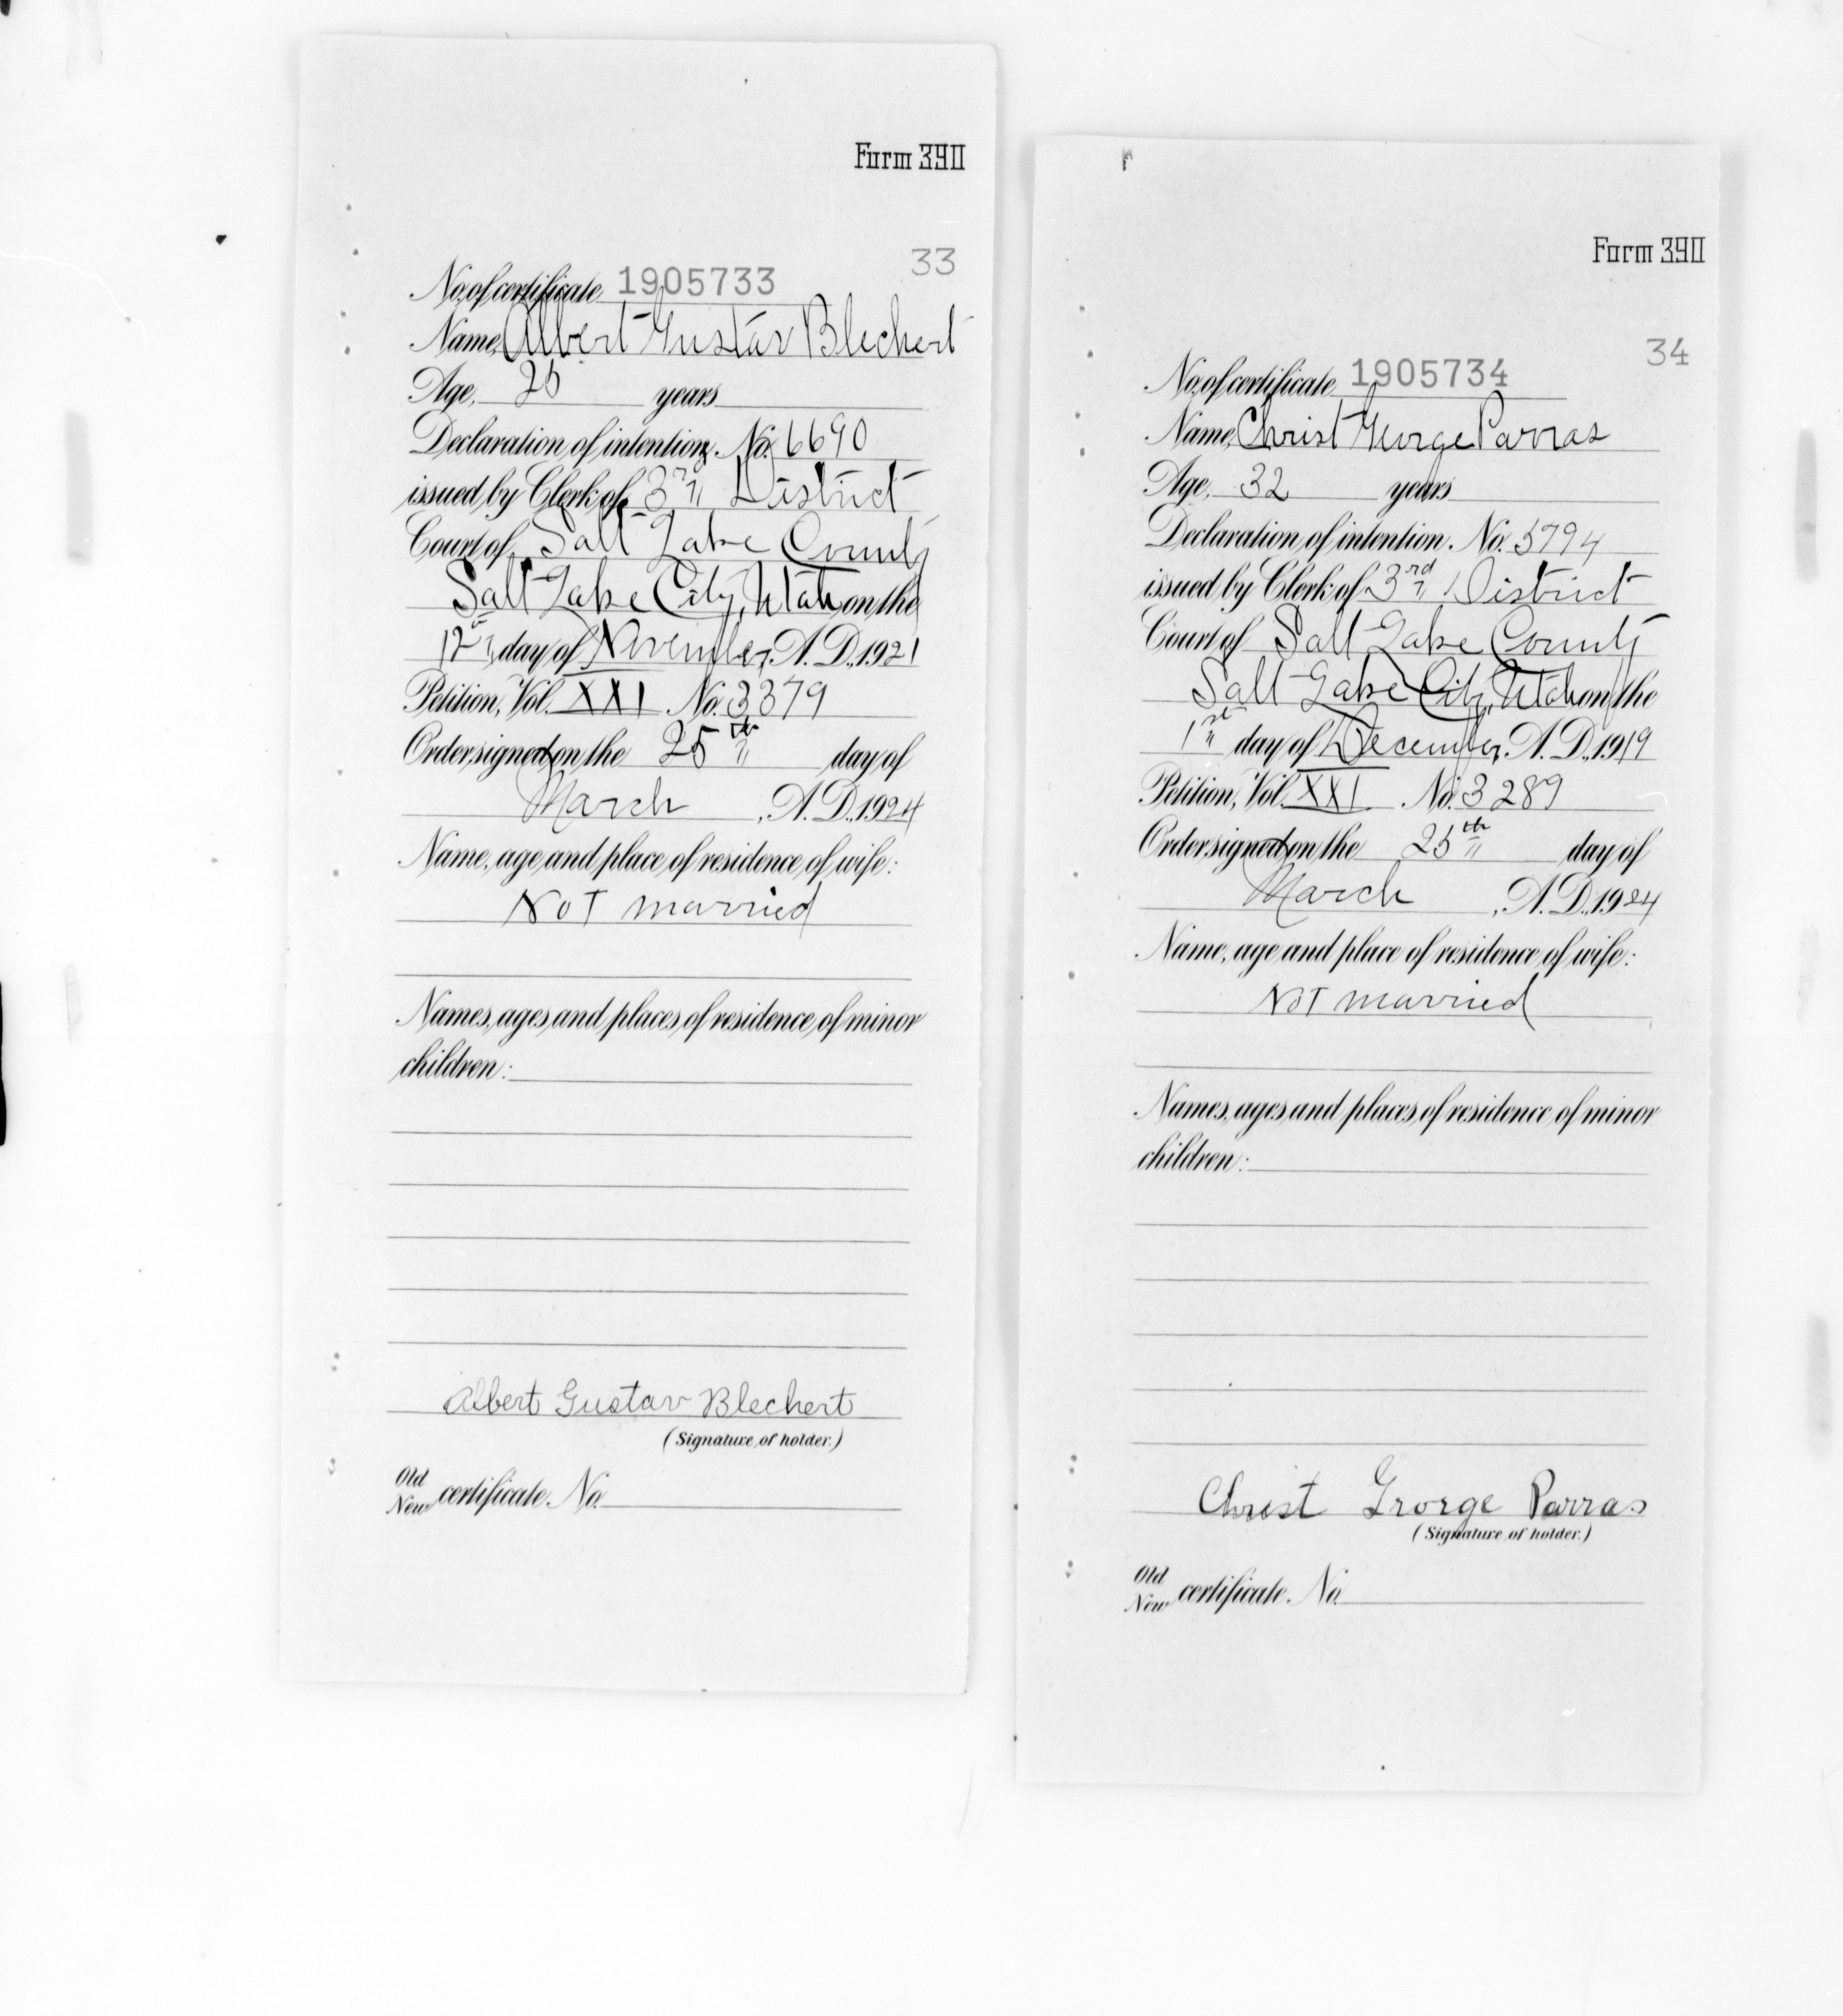 Form 390
33
No. of certificate 1905733
Name, Albert Gustav Blechert
Age, 25 years
Declaration of intention, No. 6690
issued by Clerk of 3rd District
Court of Salt Lake County
Salt Lake City, Utah on the
12th day of November, A. D., 1921
Petition, Vol. XXI No. 3379
Order signed on the 25th day of
March, A. D., 1924
Name, age and place of residence of wife:
Not married
Names, ages and places of residence of minor
children:
Albert Gustav Blechert
(Signature of holder.)
Old
New certificate No.
Form 390
34
No. of certificate 1905734
Name, Christ George Parras
Age, 32 years
Declaration of intention, No. 5794
issued by Clerk of 3rd District
Court of Salt Lake County
Salt Lake City, Utah on the
1st day of December, A. D., 1919
Petition, Vol. XXI No. 3289
Order signed on the 25th day of
March, A. D., 1924
Name, age and place of residence of wife:
Not married
Names, ages and places of residence of minor
children:
Christ George Parras
(Signature of holder.)
Old
New certificate No.